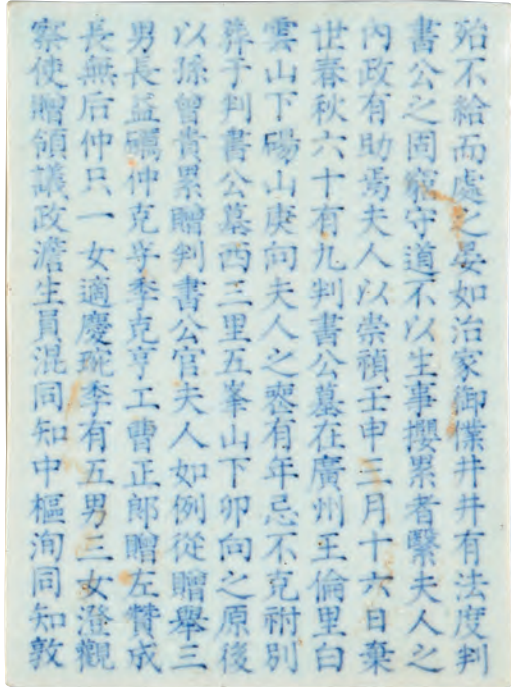 殆不給而處之晏如治家御僕井井有法度判
書公之固窮守道不以生事攖累者繄夫人之
內政有助焉夫人以崇禎壬申三月十六日棄
世春秋六十有九判書公墓在廣州王倫里白
雲山下碭山庚向夫人之喪有年忌不克祔別
葬于判書公墓西三里五峯山下卯向之原後
以孫曾貴累贈判書公官夫人如例從贈舉三
男長益礪仲克季克亨工曹正郎贈左贊成
長無后仲只一女適慶琬季有五男三女澄觀
察使贈領議政澹生員混同知中樞洵同知敦